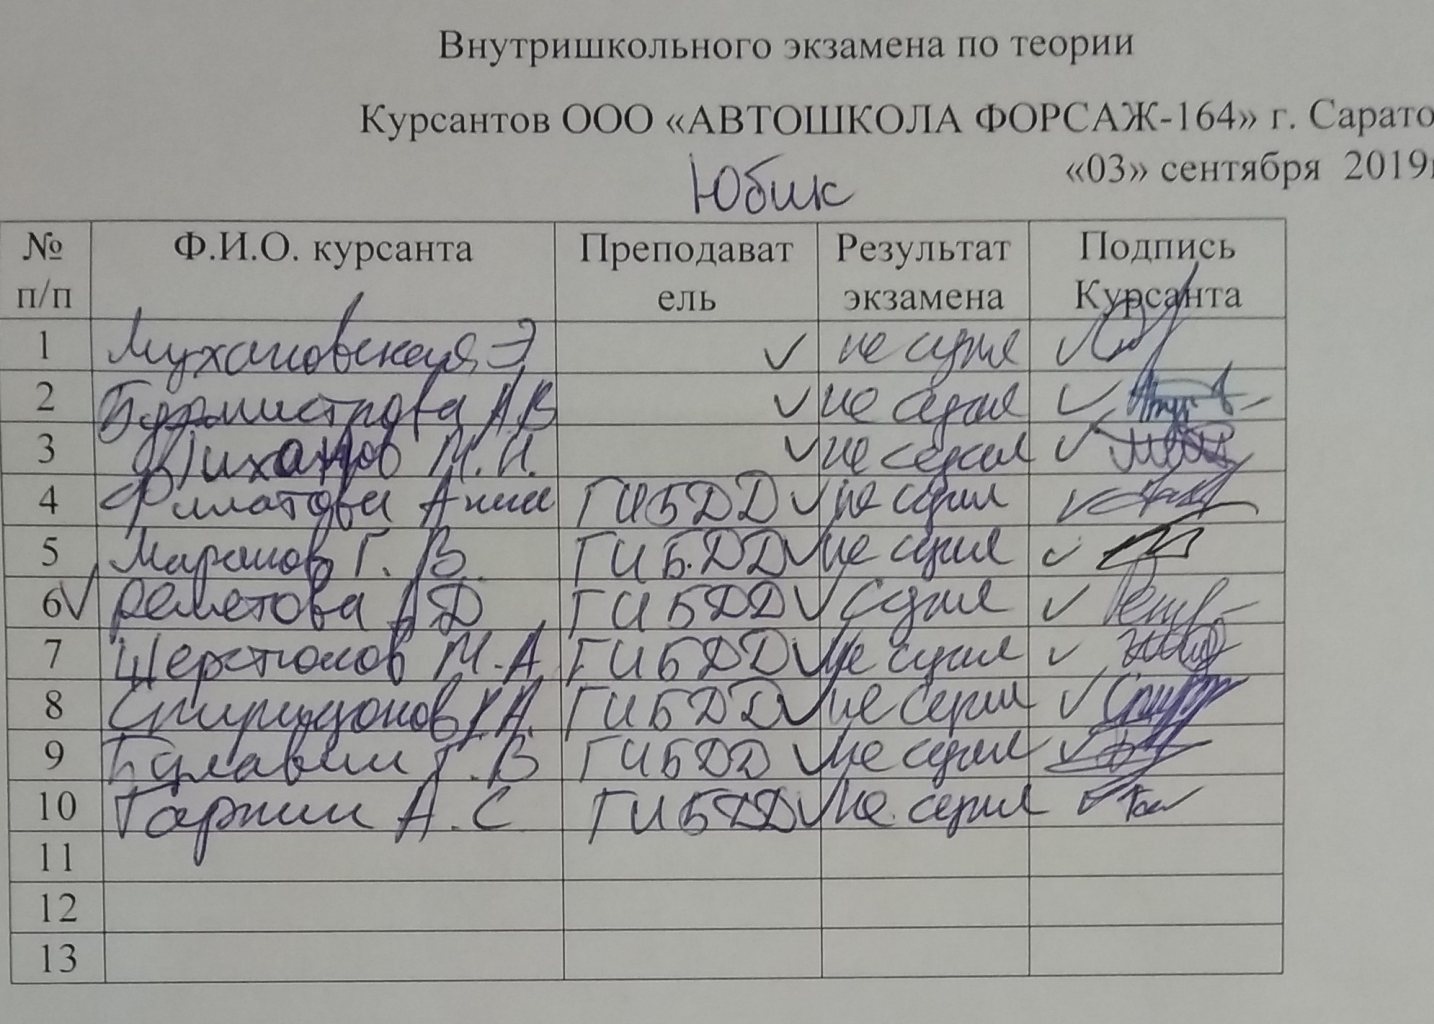 Внутришкольного экзамена по теории
Курсантов ООО «АВТОШКОЛА ФОРСАЖ-164» г. Сарато
«03» сентября 2019г
Юбик
№ п/п Ф.И.О. курсанта Преподаватель Результат экзамена Подпись Курсанта
1 Мухановская Э не сдал
2 Бурмистрова А В не сдал
3 Тиханов М.И. не сдал
4 Филатова Анна ГИБДД не сдал
5 Маранов Г. В ГИБДД не сдал
6 Реметова А Д ГИБДД Сдал
7 Шерстюков М.А. ГИБДД не сдал
8 Спиридонов ГИБДД не сдал
9 Булавин Г.В ГИБДД не сдал
10 Гаркин А.С ГИБДД не сдал
11
12
13